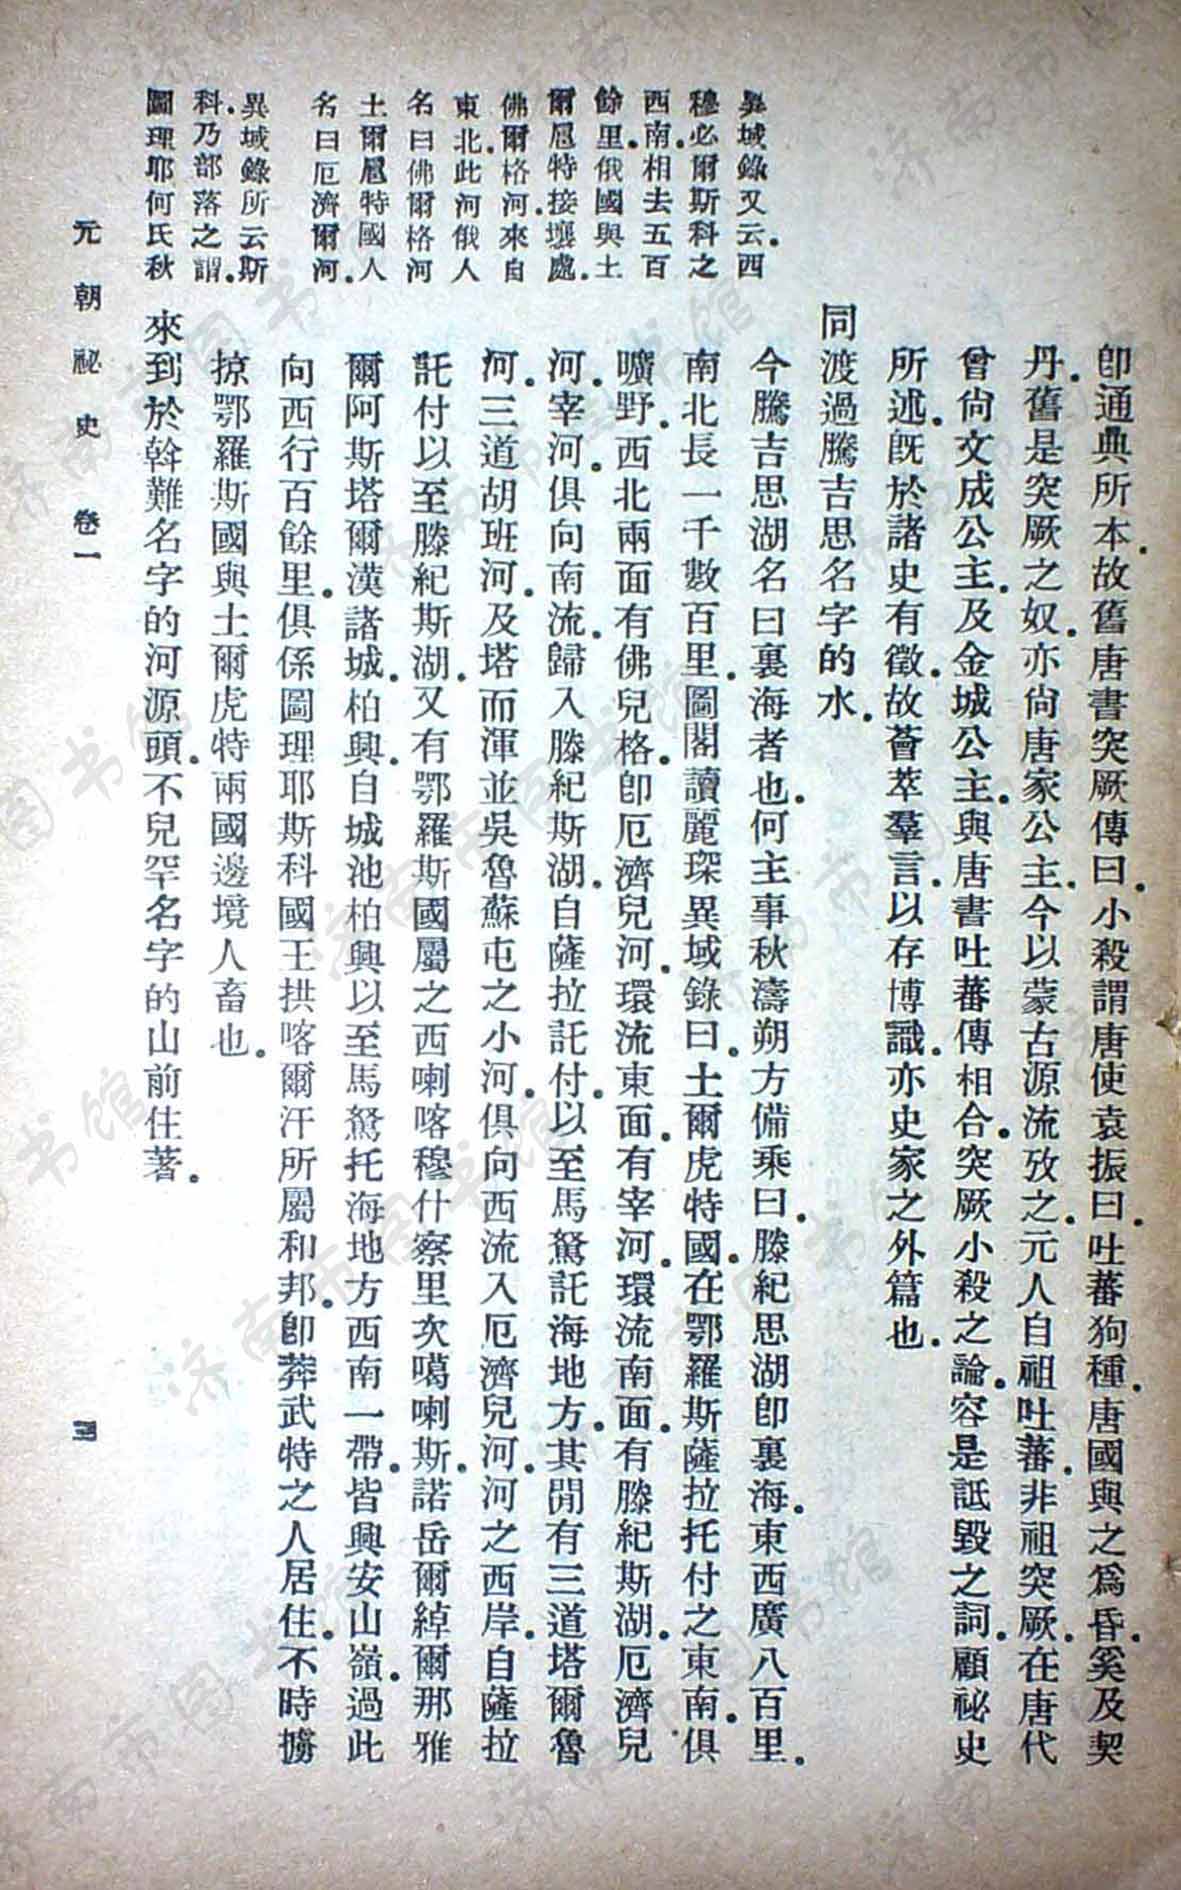 卽通典所本。故舊唐書突厥傳曰。小殺謂唐使袁振曰。吐蕃狗種。唐國與之爲昏。奚及契
丹。舊是突厥之奴。亦尙唐家公主。今以蒙古源流攷之。元人自祖吐蕃。非祖突厥。在唐代
曾尙文成公主。及金城公主。與唐書吐蕃傳相合。突厥小殺之論。容是詆毀之詞。顧祕史
所述。旣於諸史有徵。故薈萃羣言。以存博識。亦史家之外篇也。
同渡過騰吉思名字的水。
今騰吉思湖名曰裏海者也。何主事秋濤朔方備乘曰。滕紀思湖卽裏海。東西廣八百里。
南北長一千數百里。圖閣讀麗琛異域錄曰。土爾虎特國。在鄂羅斯薩拉托付之東南。俱
曠野。西北兩面有佛兒格。卽厄濟兒河。環流東面。有宰河。環流南面。有滕紀斯湖。厄濟兒
河。宰河。俱向南流。歸入滕紀斯湖。自薩拉託付。以至馬駑託海地方。其閒有三道塔爾魯
河。三道胡班河。及塔而渾並吳魯蘇屯之小河。俱向西流入厄濟兒河。河之西岸。自薩拉
託付以至滕紀斯湖。又有鄂羅斯國屬之西喇喀穆什察里次噶喇斯。諾岳爾綽爾那雅
爾阿斯塔爾漢諸城。柏興。自城池柏興以至馬駑托海地方西南一帶。皆興安山嶺。過此
向西行百餘里。俱係圖理耶斯科國王拱喀爾汗所屬和邦。卽莽武特之人居住。不時擄
掠鄂羅斯國與土爾虎特兩國邊境人畜也。
來到於斡難名字的河源頭。不兒罕名字的山前住著。
異域錄又云。西
穆必爾斯科之
西南。相去五百
餘里。俄國與土
爾扈特接壤處。
佛爾格河來自
東北。此河俄人
名曰佛爾格河
土爾扈特國人
名曰厄濟爾河。
異域錄所云斯
科。乃部落之謂。
圖理耶何氏秋
元朝祕史 卷一
四
济南市图书馆